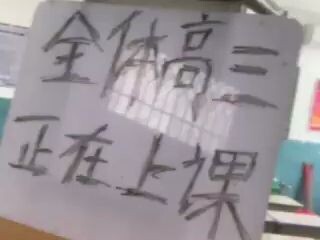 全体高三
正在上课